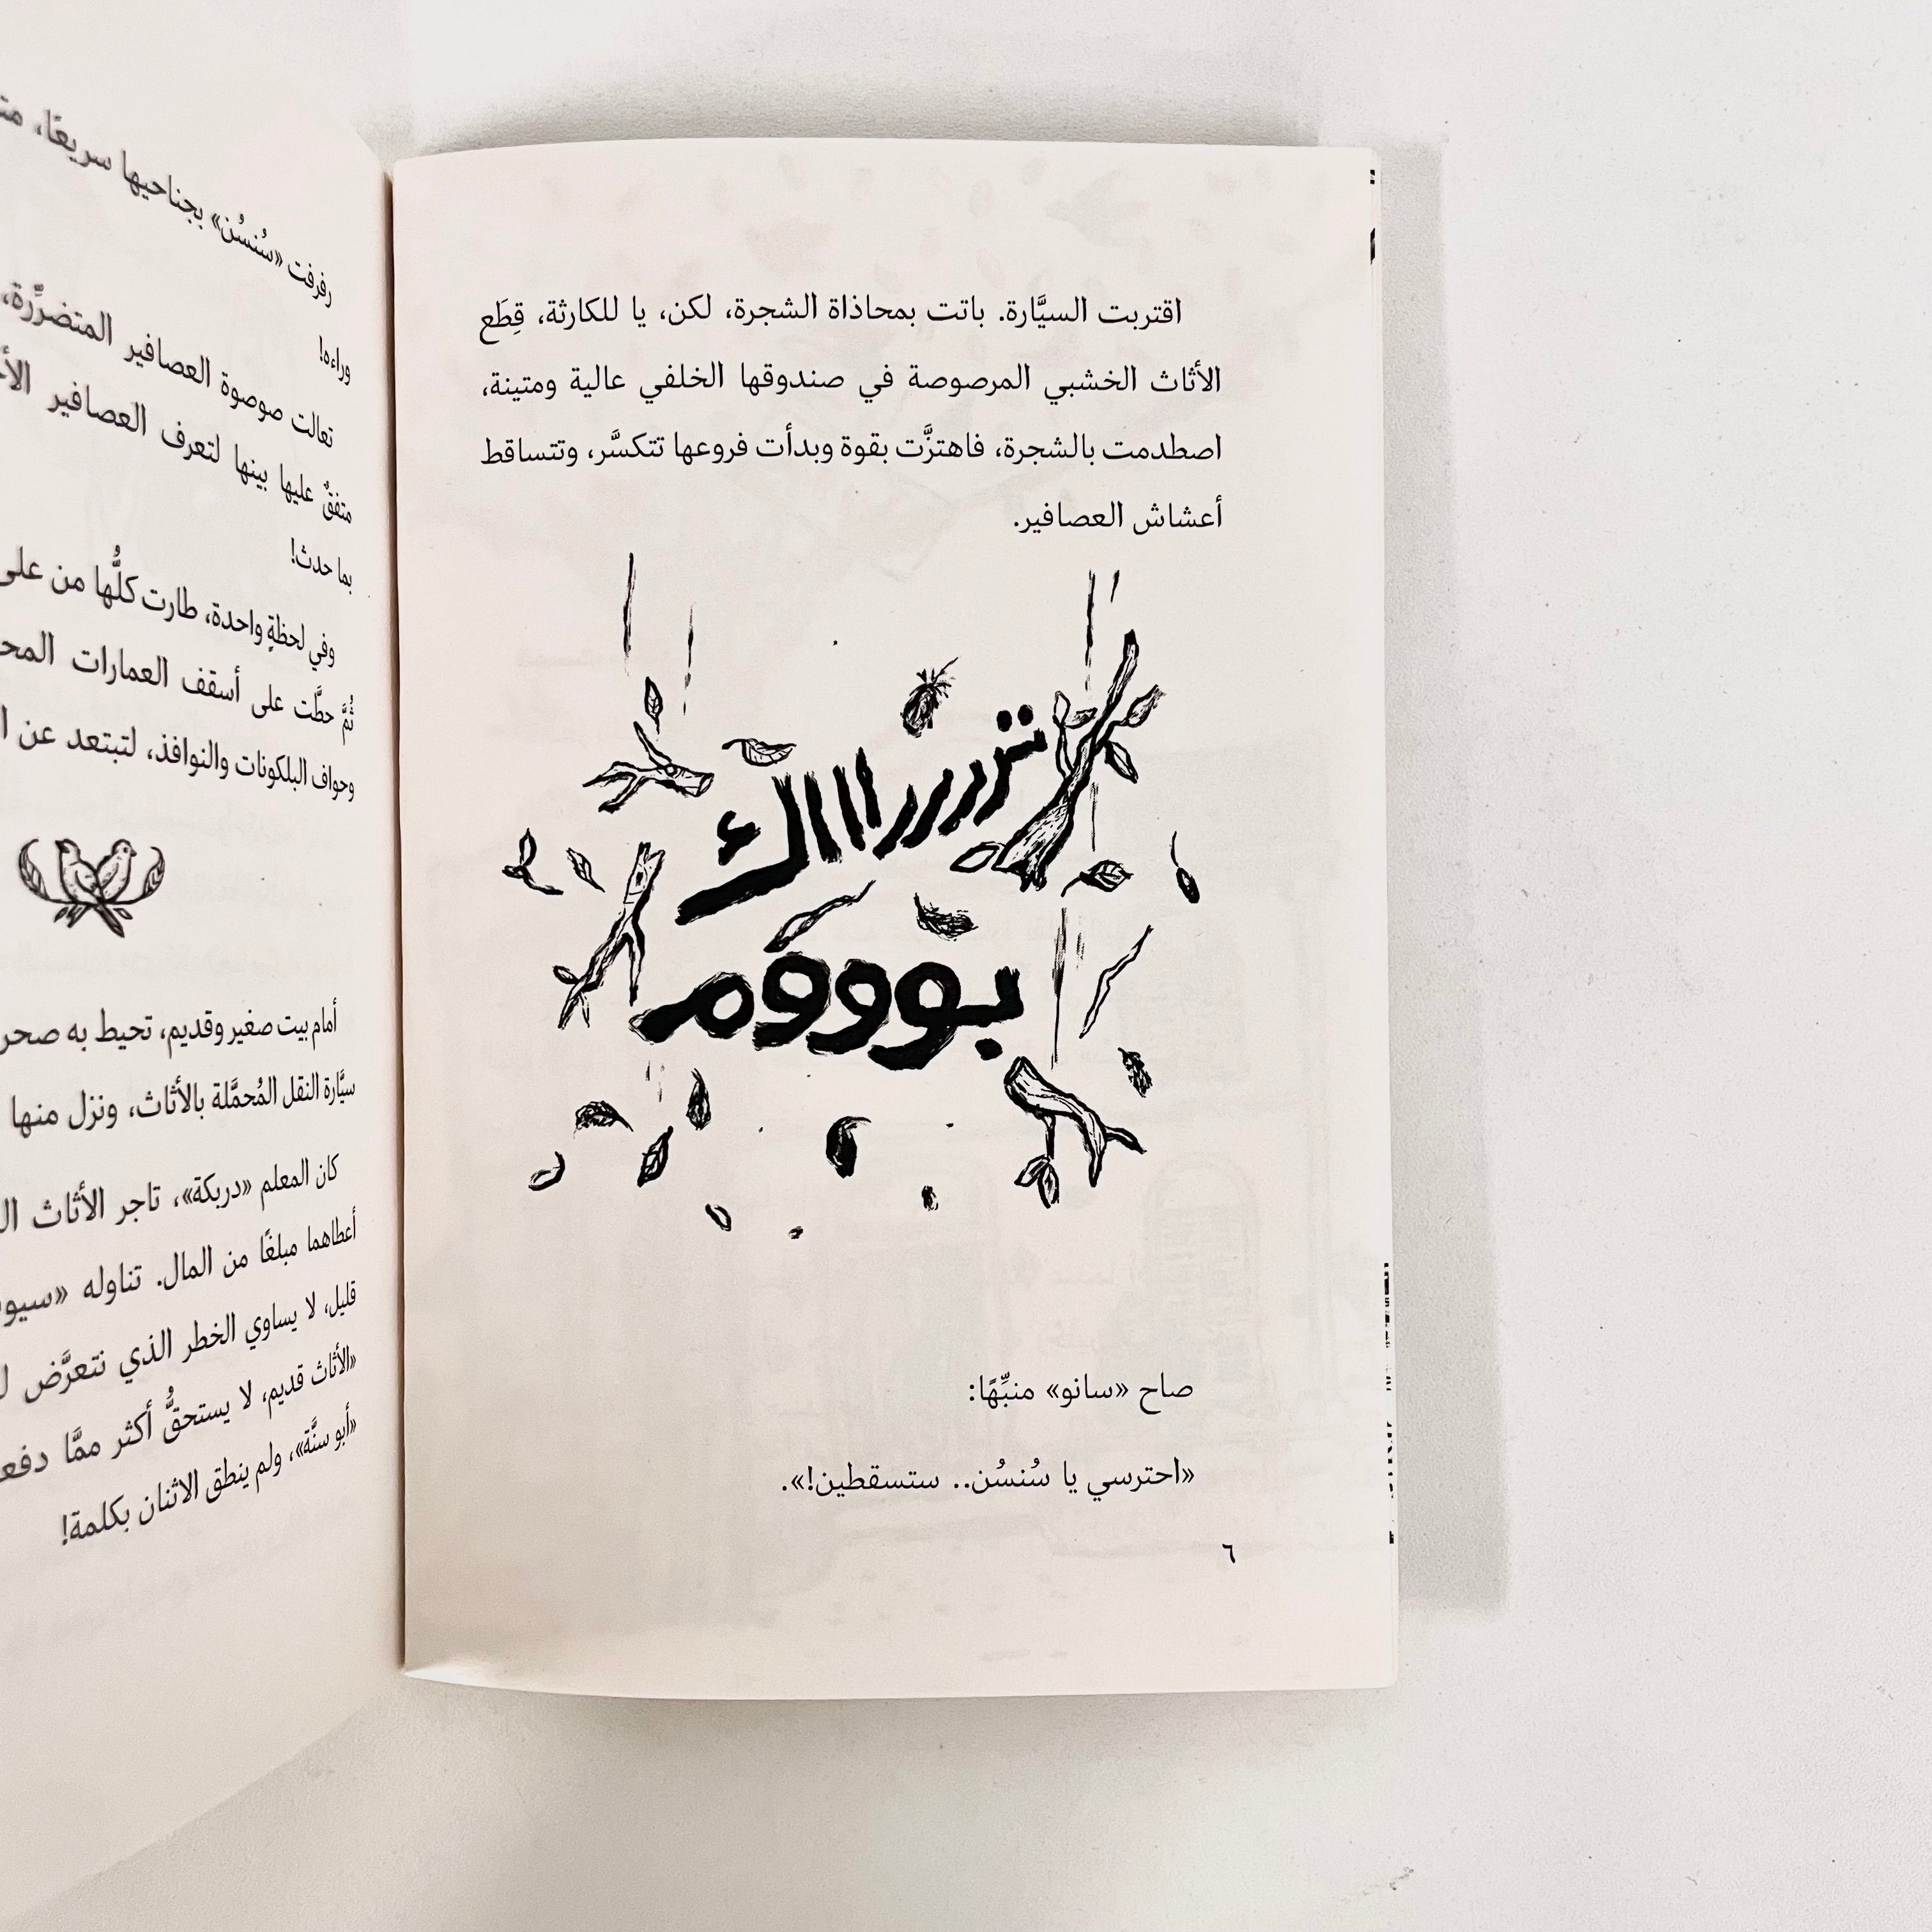 اقتربت السيَّارة. باتت بمحاذاة الشجرة، لكن، يا للكارثة، قِطَع
الأثاث الخشبي المرصوصة في صندوقها الخلفي عالية ومتينة،
اصطدمت بالشجرة، فاهتزَّت بقوة وبدأت فروعها تتكسَّر، وتتساقط
أعشاش العصافير.
تررررااااك
بوووم
صاح «سانو» منبِّهًا:
«احترسي يا سُنسُن.. ستسقطين!».
٦
رفرفت «سُنسُن» بجناحيها سريعًا،
وراءه!
تعالت صوصوة العصافير المتضرِّرة،
متفقٌ عليها بينها لتعرف العصافير
بما حدث!
وفي لحظةٍ واحدة، طارت كلُّها من على
ثُمَّ حطَّت على أسقف العمارات
وحواف البلكونات والنوافذ، لتبتعد عن
أمام بيت صغير وقديم، تحيط به
سيَّارة النقل المُحمَّلة بالأثاث، ونزل منها
كان المعلم «دربكة»، تاجر الأثاث
أعطاهما مبلغًا من المال. تناوله
قليل، لا يساوي الخطر الذي نتعرَّض
«الأثاث قديم، لا يستحقُّ أكثر ممَّا
«أبو سنَّة»، ولم ينطق الاثنان بكلمة!